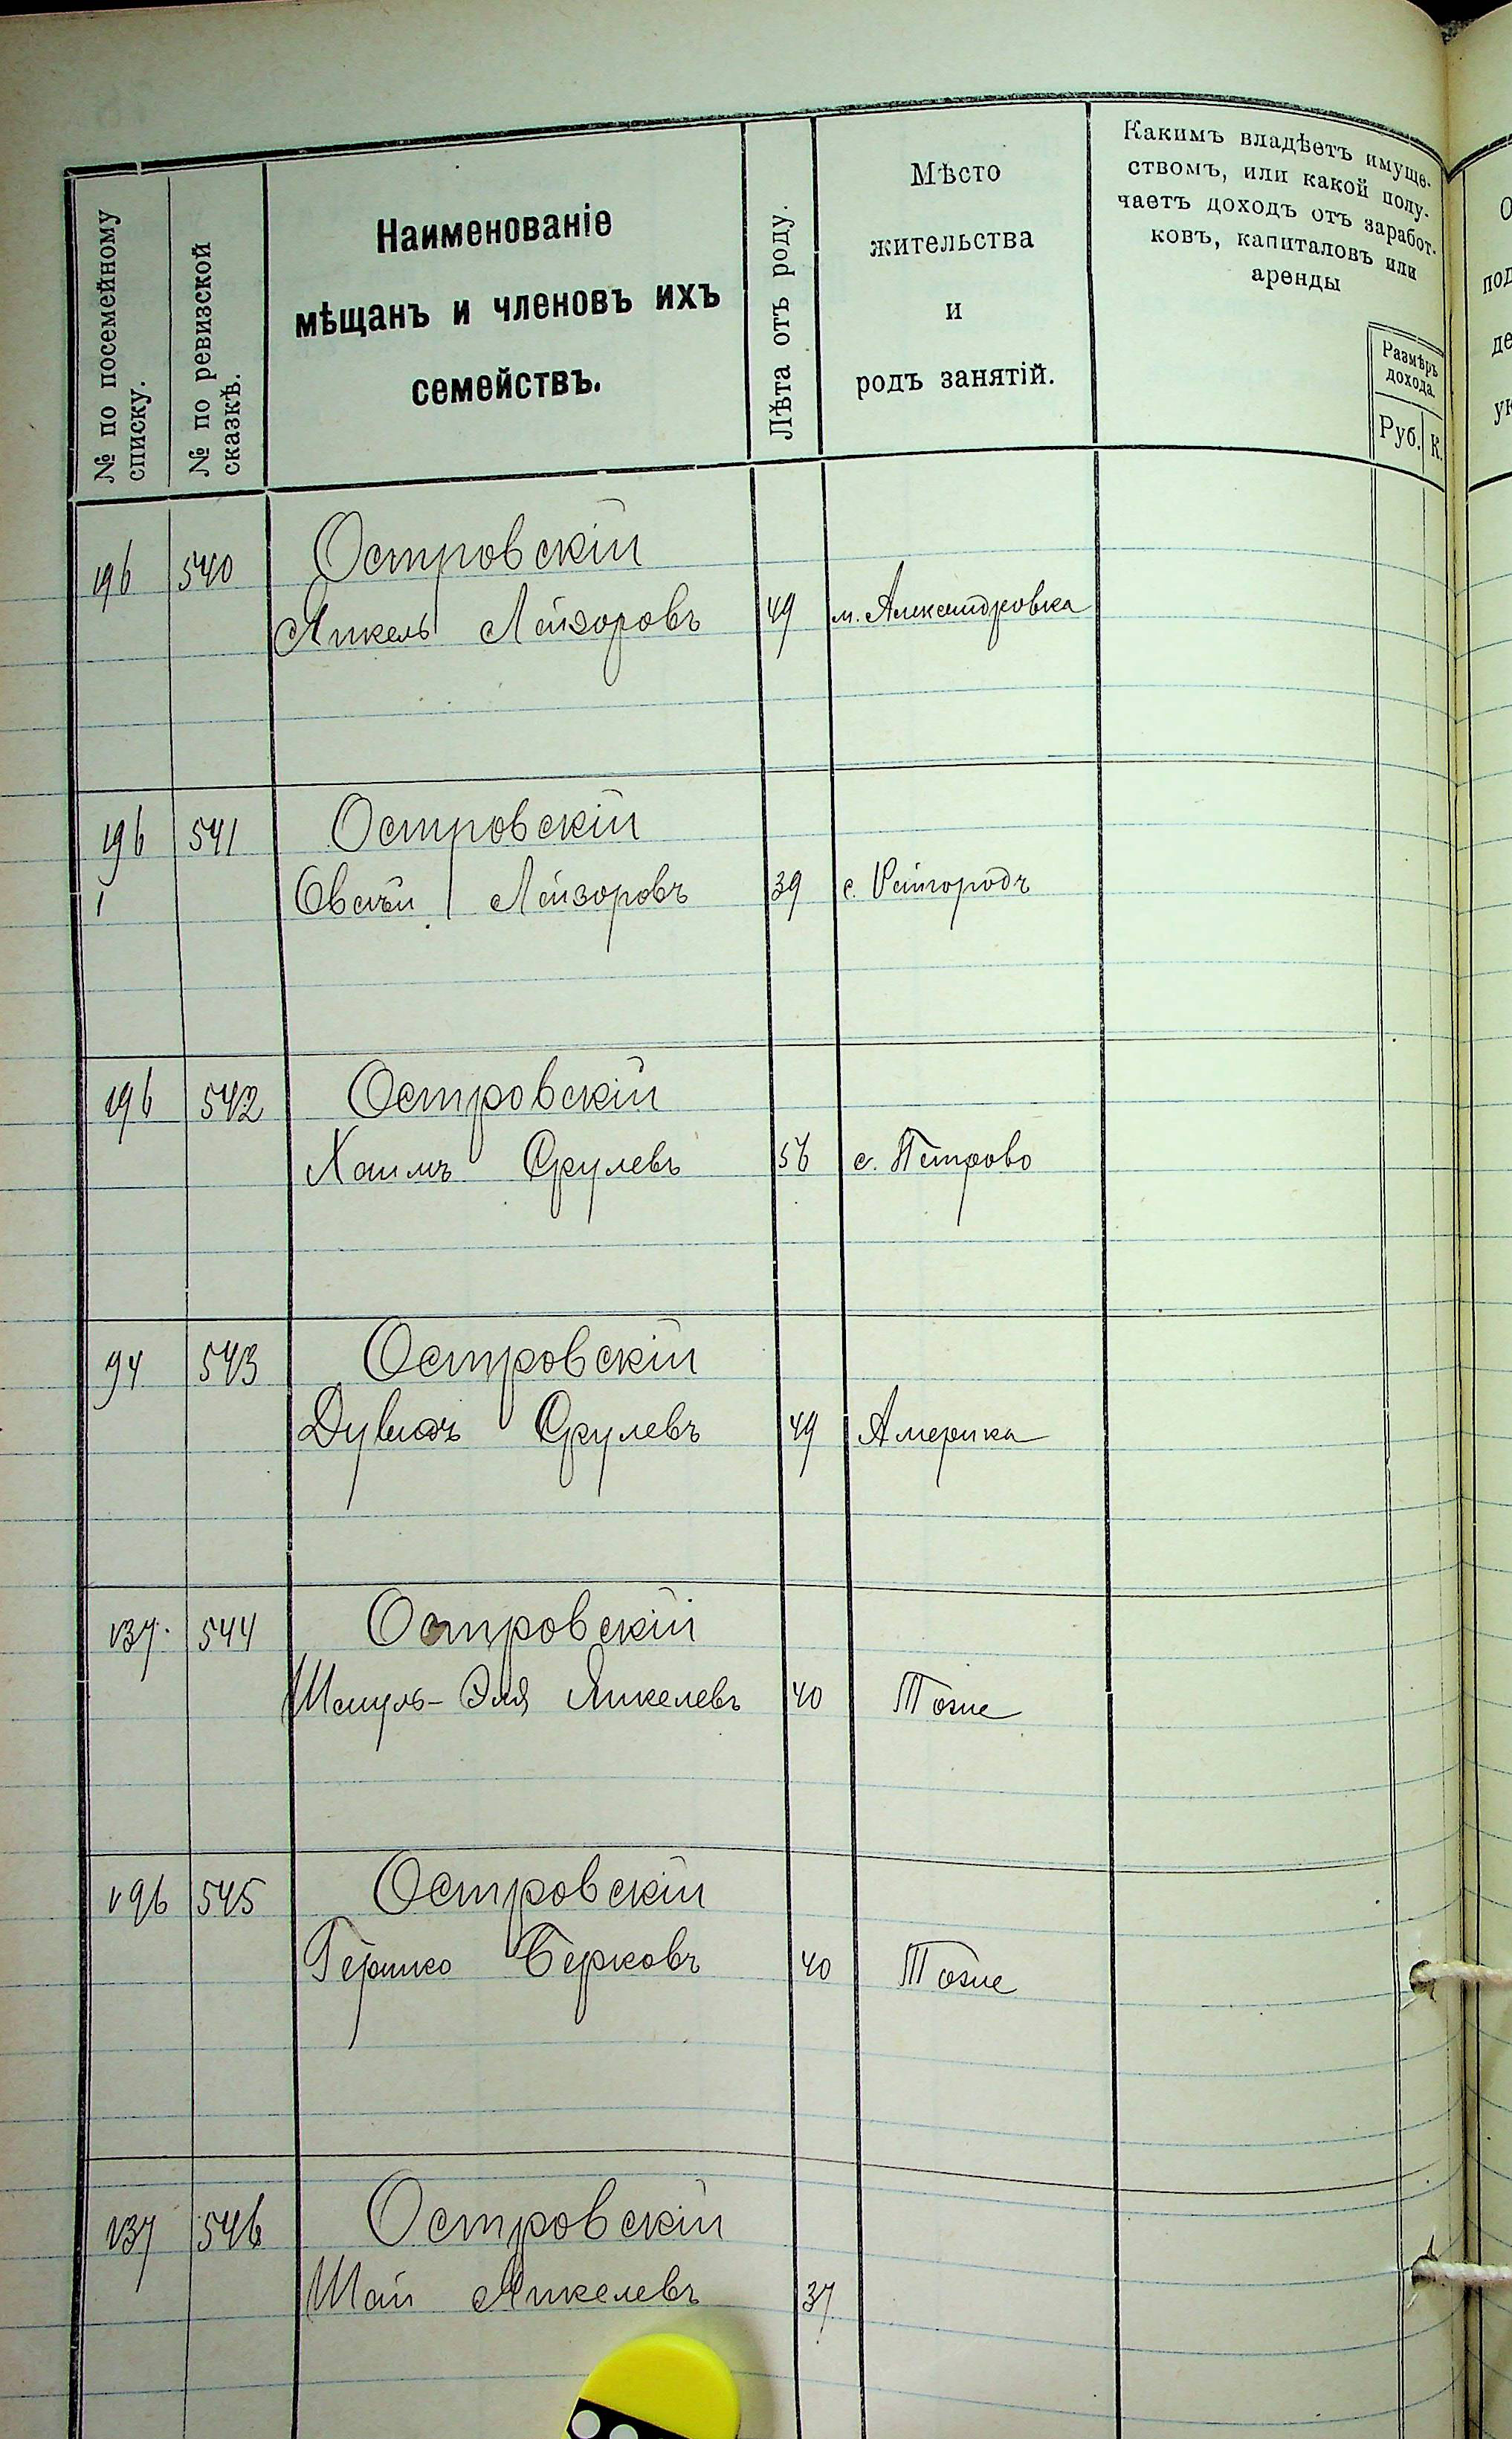 № по посемейному
списку.
№ по ревизской
сказкѣ.
Наименованіе
мѣщанъ и членовъ ихъ
семействъ.
Лѣта отъ роду.
Мѣсто
жительства
и
родъ занятій.
Какимъ владѣетъ имуще-
ствомъ, или какой полу-
чаетъ доходъ отъ заработ-
ковъ, капиталовъ или
аренды
Размѣръ
дохода.
Руб. К.
196 540 Островскій
Янкель Лейзоровъ 49 м. Александровка
196 541 Островскій
1 Овсѣй Лейзоровъ 39 с. Райгородъ
196 542 Островскій
Хаимъ Срулевъ 56 с. Петрово
94 543 Островскій
Дувидъ Срулевъ 49 Америка
137 544 Островскій
Шмуль-Эля Янкелевъ 40 Тоже
196 545 Островскій
Гершко Берковъ 40 Тоже
137 546 Островскій
Шая Янкелевъ 37